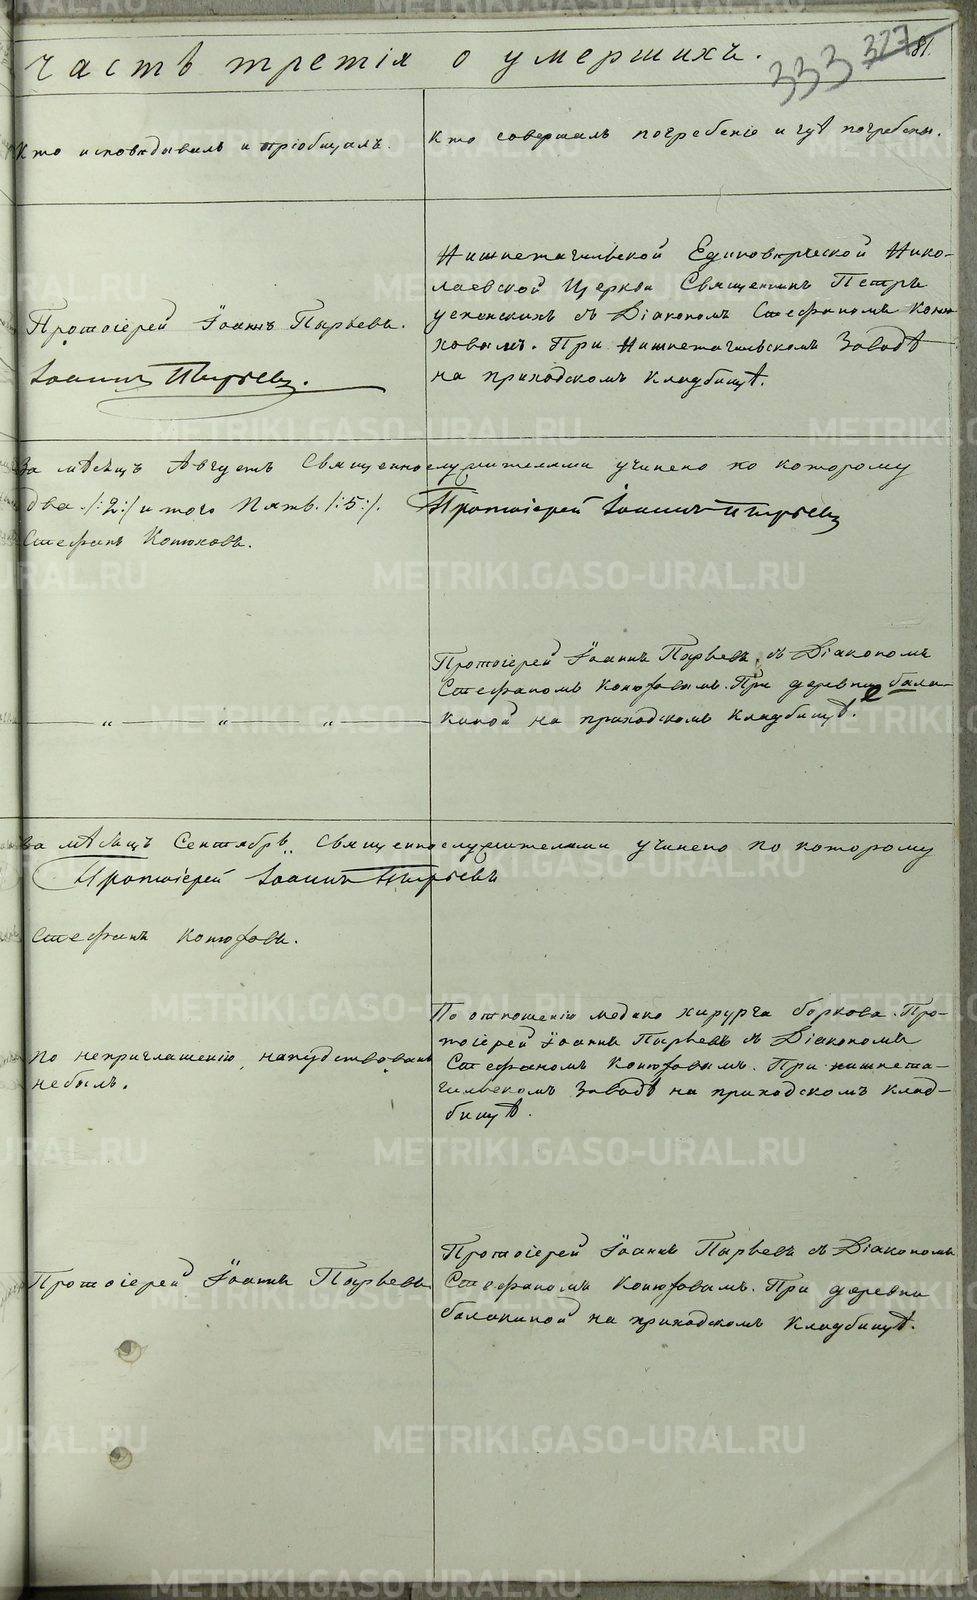 Часть третія о умершихъ.
333 327 81.
Кто исповѣдывалъ и пріобщалъ.
Кто совершалъ погребеніе и гдѣ погребены.
Протоіерей Іоаннъ Пырьевъ.
Іоаннъ Пырьевъ.
Нижнетагильской Единовѣрческой Нико-
лаевской Церкви Священникъ Петръ
съ Діакономъ Стефаномъ Коню-
ховымъ. При Нижнетагильскомъ Заводѣ
на приходскомъ Кладбищѣ.
За мѣсяцъ Августъ Священнослужителями учинено по которому
два ./:2:/ и того Пять ./:5:/. Протоіерей Іоаннъ Пырьевъ
Стефанъ Конюховъ.
Протоіерей Іоаннъ Пырьевъ съ Діакономъ
Стефаномъ Конюховымъ. При деревне бала-
киной на приходскомъ Кладбищѣ.
— „ — „ — „ —
За мѣсяцъ Сентябрь Священнослужителями учинено по которому
Протоіерей Іоаннъ Пырьевъ
Стефанъ Конюховъ.
По неприглашенію, напутствованъ
небылъ.
По отношенію медико хирурга боркова. Про-
тоіерей Іоаннъ Пырьевъ съ Діакономъ
Стефаномъ Конюховымъ. При нижнета-
гильскомъ Заводѣ на приходскомъ Клад-
бищѣ.
Протоіерей Іоаннъ Пырьевъ
Протоіерей Іоаннъ Пырьевъ съ Діакономъ
Стефаномъ Конюховымъ. При деревни
балакиной на приходскомъ Кладбищѣ.
METRIKI.GASO-URAL.RU